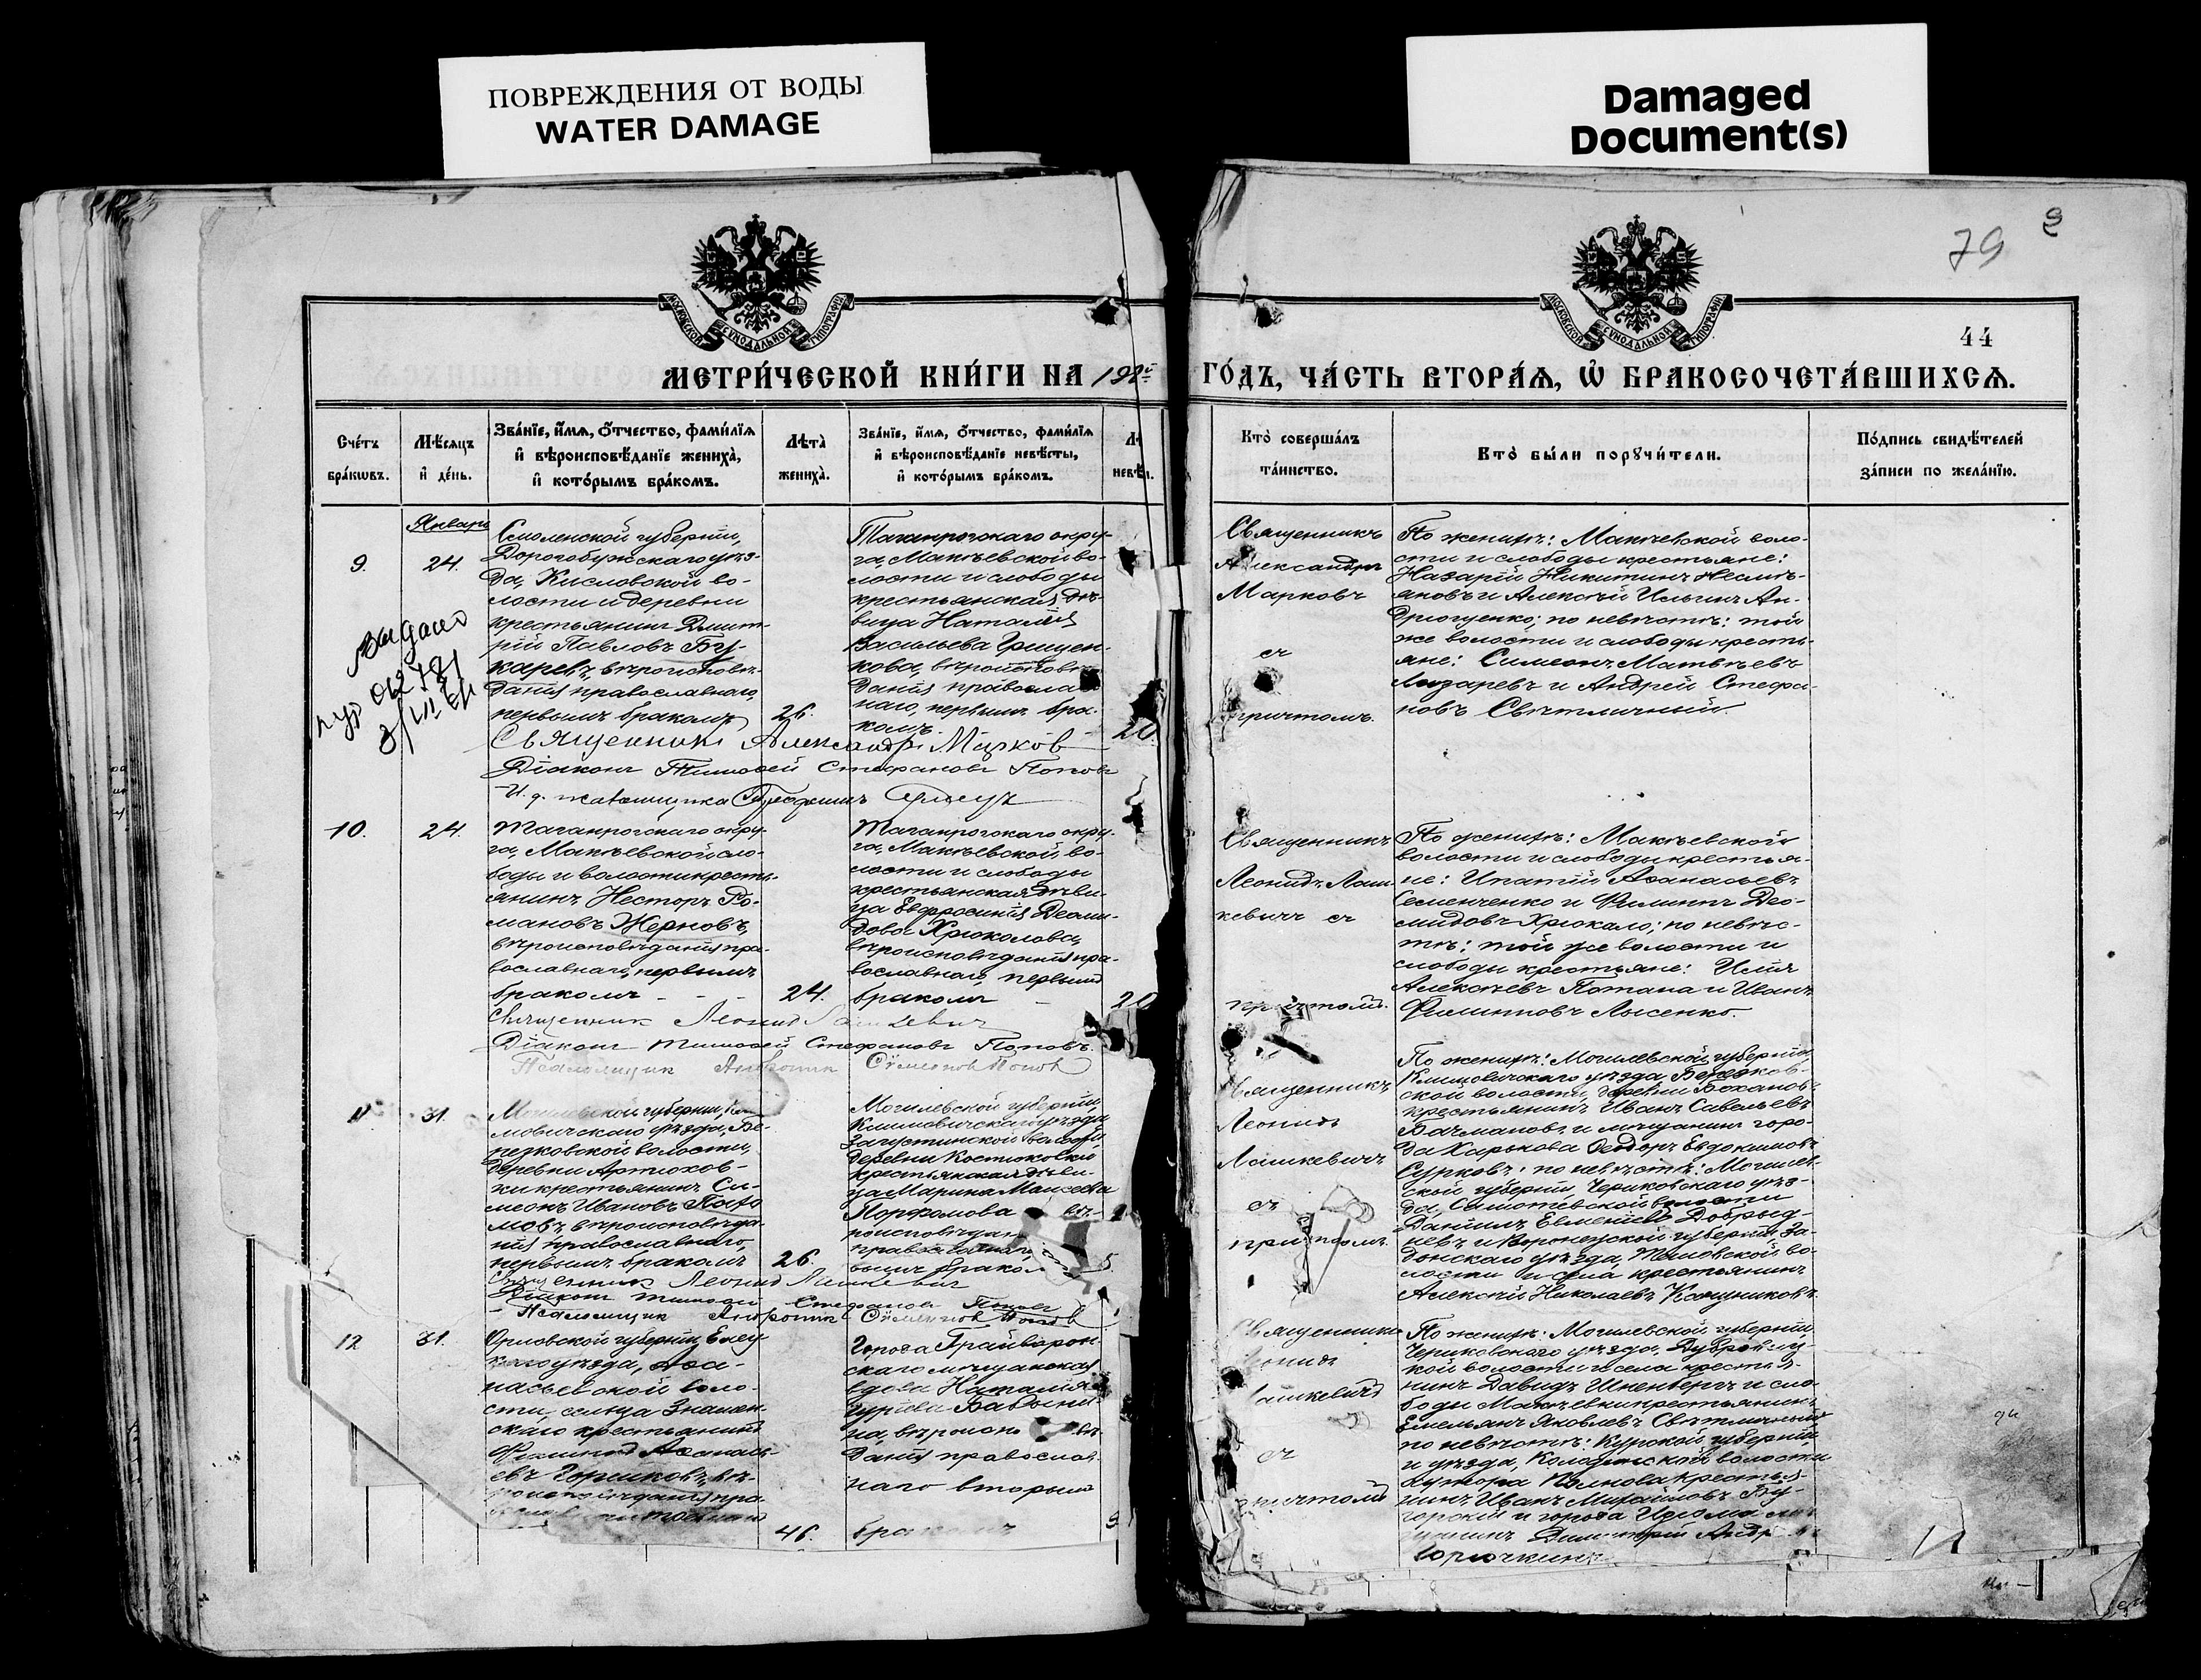 ПОВРЕЖДЕНИЯ ОТ ВОДЫ
WATER DAMAGE
Damaged
Document(s)
79
44
МЕТРИ́ЧЕСКОЙ КНИ́ГИ НА
ГО́ДЪ, ЧА́СТЬ ВТОРА́Ѧ, Ѡ҆ БРАКОСОЧЕТА́ВШИХСѦ.
Сче́тъ
бра́кѡвъ.
Мѣ́сяцъ
и҆ де́нь.
Зва́нїе, и҆́мѧ, ѻ҆́тчество, фами́лїѧ
и҆ вѣроисповѣ́данїе жениха̀,
и҆ кото́рымъ бра́комъ.
Лѣта̀
жениха̀.
Зва́нїе, и҆́мѧ, ѻ҆́тчество, фами́лїѧ
и҆ вѣроисповѣ́данїе невѣ́сты,
и҆ кото́рымъ бра́комъ.
Кто̀ соверша́лъ
та́инство.
Кто̀ бы́ли порꙋчи́тели.
По́дпись свидѣ́телей
за́писи по жела́нїю.
Январь
9.
24.
Смоленской губерніи,
Дорогобужскаго уѣз-
да, Кисловской во-
лости и деревни
крестьянинъ Димит-
рій Павловъ Бу-
каревъ, вѣроисповѣ-
данія православнаго,
первымъ бракомъ
26.
Таганрогскаго окру-
га, Макѣевской во-
лости и слободы
крестьянская дѣ-
вица Наталія
Васильева Грицен-
кова, вѣроисповѣ-
данія правосла
наго, первымъ бра-
комъ.
20
Священникъ
Александръ
Марковъ
съ
причтомъ.
По женихѣ: Макѣевской воло-
сти и слободы крестьяне:
Назарій Никитинъ Несмѣ-
яновъ и Алексѣй Ильинъ Ан-
дрющенко; по невѣстѣ: той
же волости и слободы кресть-
яне: Симеонъ Матвѣевъ
Лазаревъ и Андрей Стефа-
новъ Свѣтличный.
Священникъ Александръ Марковъ
Діаконъ Тимофей Стефановъ Поповъ
И. д. псаломщика
10.
24.
Таганрогскаго окру-
га, Макѣевской сло-
боды и волости кресть-
янинъ Несторъ Ро-
мановъ Жерновъ,
вѣроисповѣданія пра-
вославнаго, первымъ
бракомъ - - -
24.
Таганрогскаго окру-
га, Макѣевской во-
лости и слободы
крестьянская дѣви-
ца Евфросинія Деоми-
дова Хрюколова,
вѣроисповѣданія пра-
вославнаго, первымъ
бракомъ -
20
Священникъ
Леонидъ Лаш-
кевичъ съ
причтомъ.
По женихѣ: Макѣевской
волости и слободы крестья-
не: Ипатій Аѳанасьевъ
Семенченко и Филиппъ Део-
мидовъ Хрюкало; по невѣс-
тѣ: той же волости и
слободы крестьяне: Илія
Алексѣевъ Потапа и Иванъ
Филипповъ Лысенко.
Священникъ Леонидъ Лашкевичъ
Діаконъ Тимофей Стефановъ Поповъ.
Псаломщикъ Андроникъ Сѵмеоновъ Поповъ
11.
31.
Могилевской губерніи, Кли
мовичскаго уѣзда, Бе-
редковской волости,
деревни Артюхов-
ки крестьянинъ Си-
меонъ Ивановъ
мовъ, вѣроисповѣда-
нія православнаго,
первымъ бракомъ
26.
Могилевской губерніи,
Климовичскаго уѣзда
волости,
деревни Костюковки
крестьянская дѣви-
ца Марина Моисеева
православнаго,
Священникъ
Леонидъ
Лашкевичъ
съ
причтомъ.
По женихѣ: Могилевской губерніи,
Климовичскаго уѣзда
ской волости, деревни
крестьянинъ Иванъ Савельевъ
и мѣщанинъ горо-
да Харькова Ѳеодоръ Евдокимовъ
Сурковъ; по невѣстѣ: Могилев-
ской губерніи, Чериковскаго уѣз-
да, волости
Даніилъ
невъ и Воронежской губерніи За-
донскаго уѣзда, во-
лости и села крестьянинъ
Алексѣй Николаевъ
Священникъ Леонидъ Лашкевичъ
Діаконъ Тимофей Стефановъ Поповъ
Псаломщикъ Андроникъ Сѵмеоновъ Поповъ
12
31.
Орловской губерніи, Елец
каго уѣзда, Аѳа-
насьевской воло-
сти, сельца Знамен-
скаго крестьянинъ
Филиппъ Аѳанась-
евъ Горшковъ, вѣ-
роисповѣданія пра-
46.
Города Грайворон-
скаго мѣщанская
вдова Наталія
даній православ-
наго вторымъ
бракомъ
Священникъ
съ
причтомъ
По женихѣ: Могилевской губерніи,
Чериковскаго уѣзда,
кой волости и села крестья-
нинъ Давидъ и сло-
боды Макѣевки крестьянинъ
Емельянъ Яковлевъ Свѣтличный
по невѣстѣ: Курской губерніи
и уѣзда, волости
хутора крестья-
нинъ Иванъ Михайловъ Бу-
Димитрій